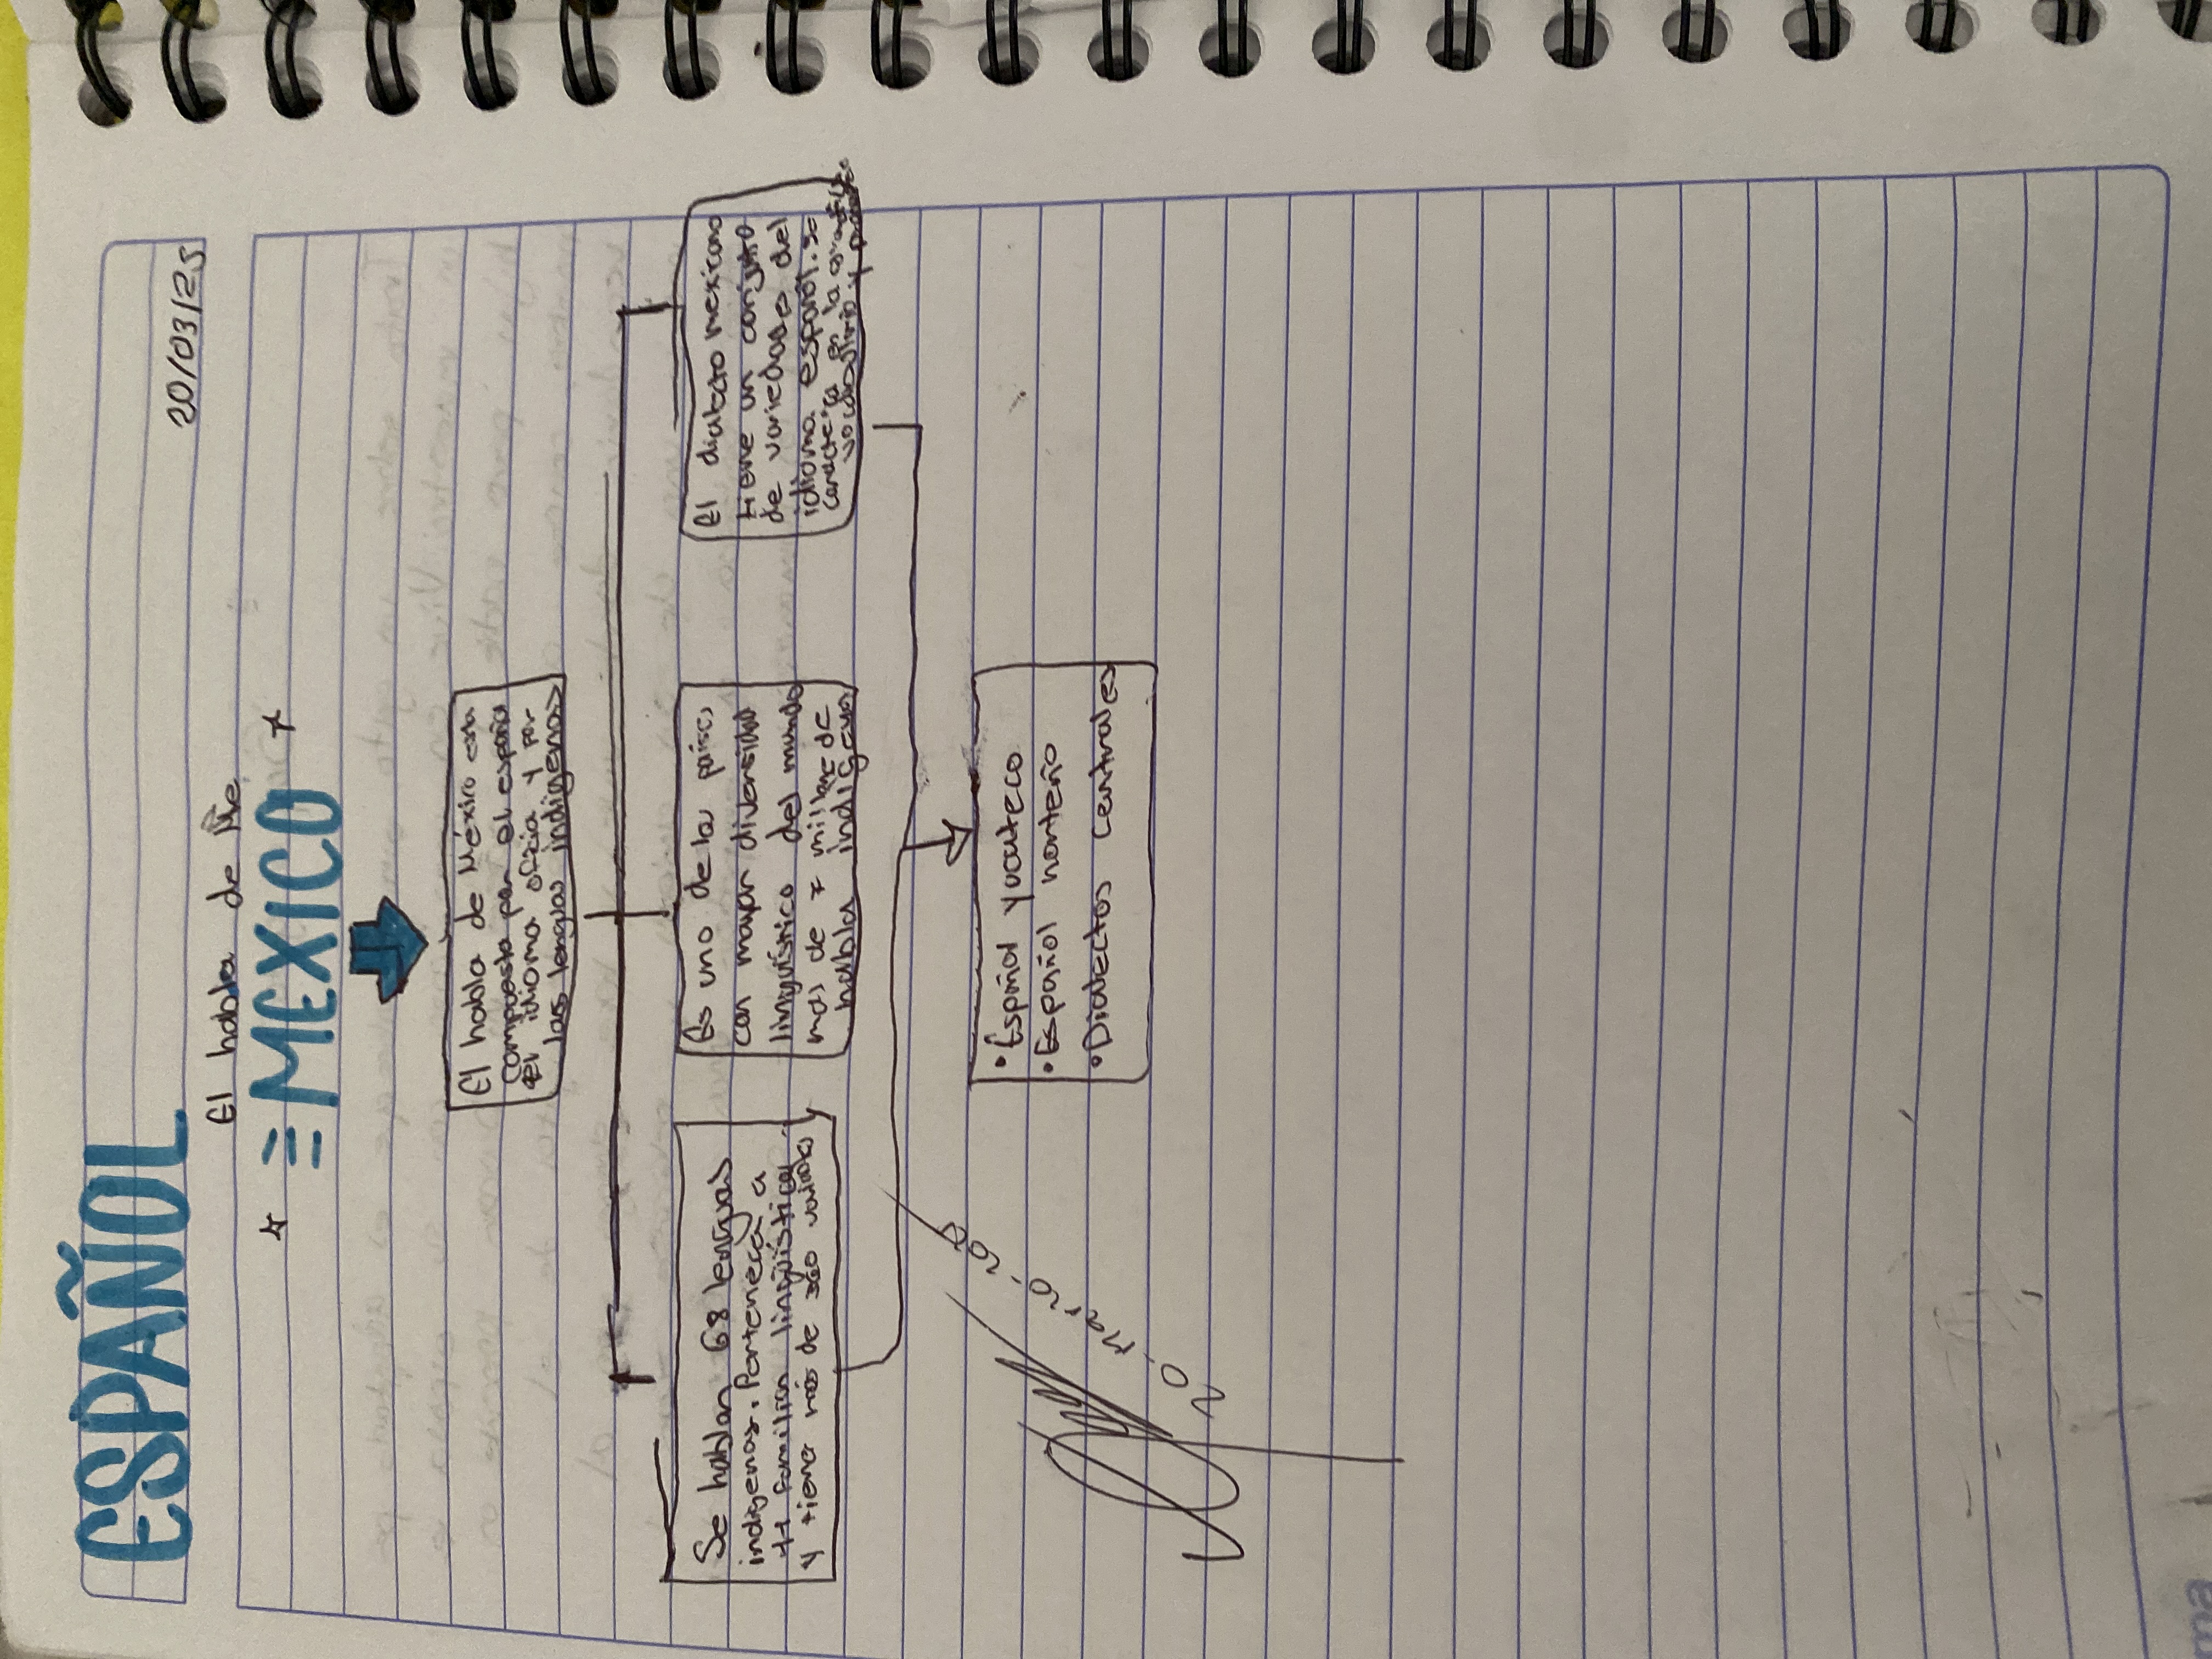 ESPAÑOL
20/03/25
El habla de Me
MEXICO
El habla de México esta
compuesta por el español
El idioma oficia y por
las lenguas indigenas
Se hablan 68 lenguas
indigenas. Pertenecen a
11 familias lingüísticas
y tienen más de 360 variantes
Es uno de los paises
con mayor diversidad
linguistico del mundo
mas de 7 millones de
hablas indigenas
El dialecto mexicano
tiene un conjunto
de variedades del
idioma español. se
caracteriza en la gramática
vocabulario y
• Español yucateco
• Español norteño
• Dialectos Centrales